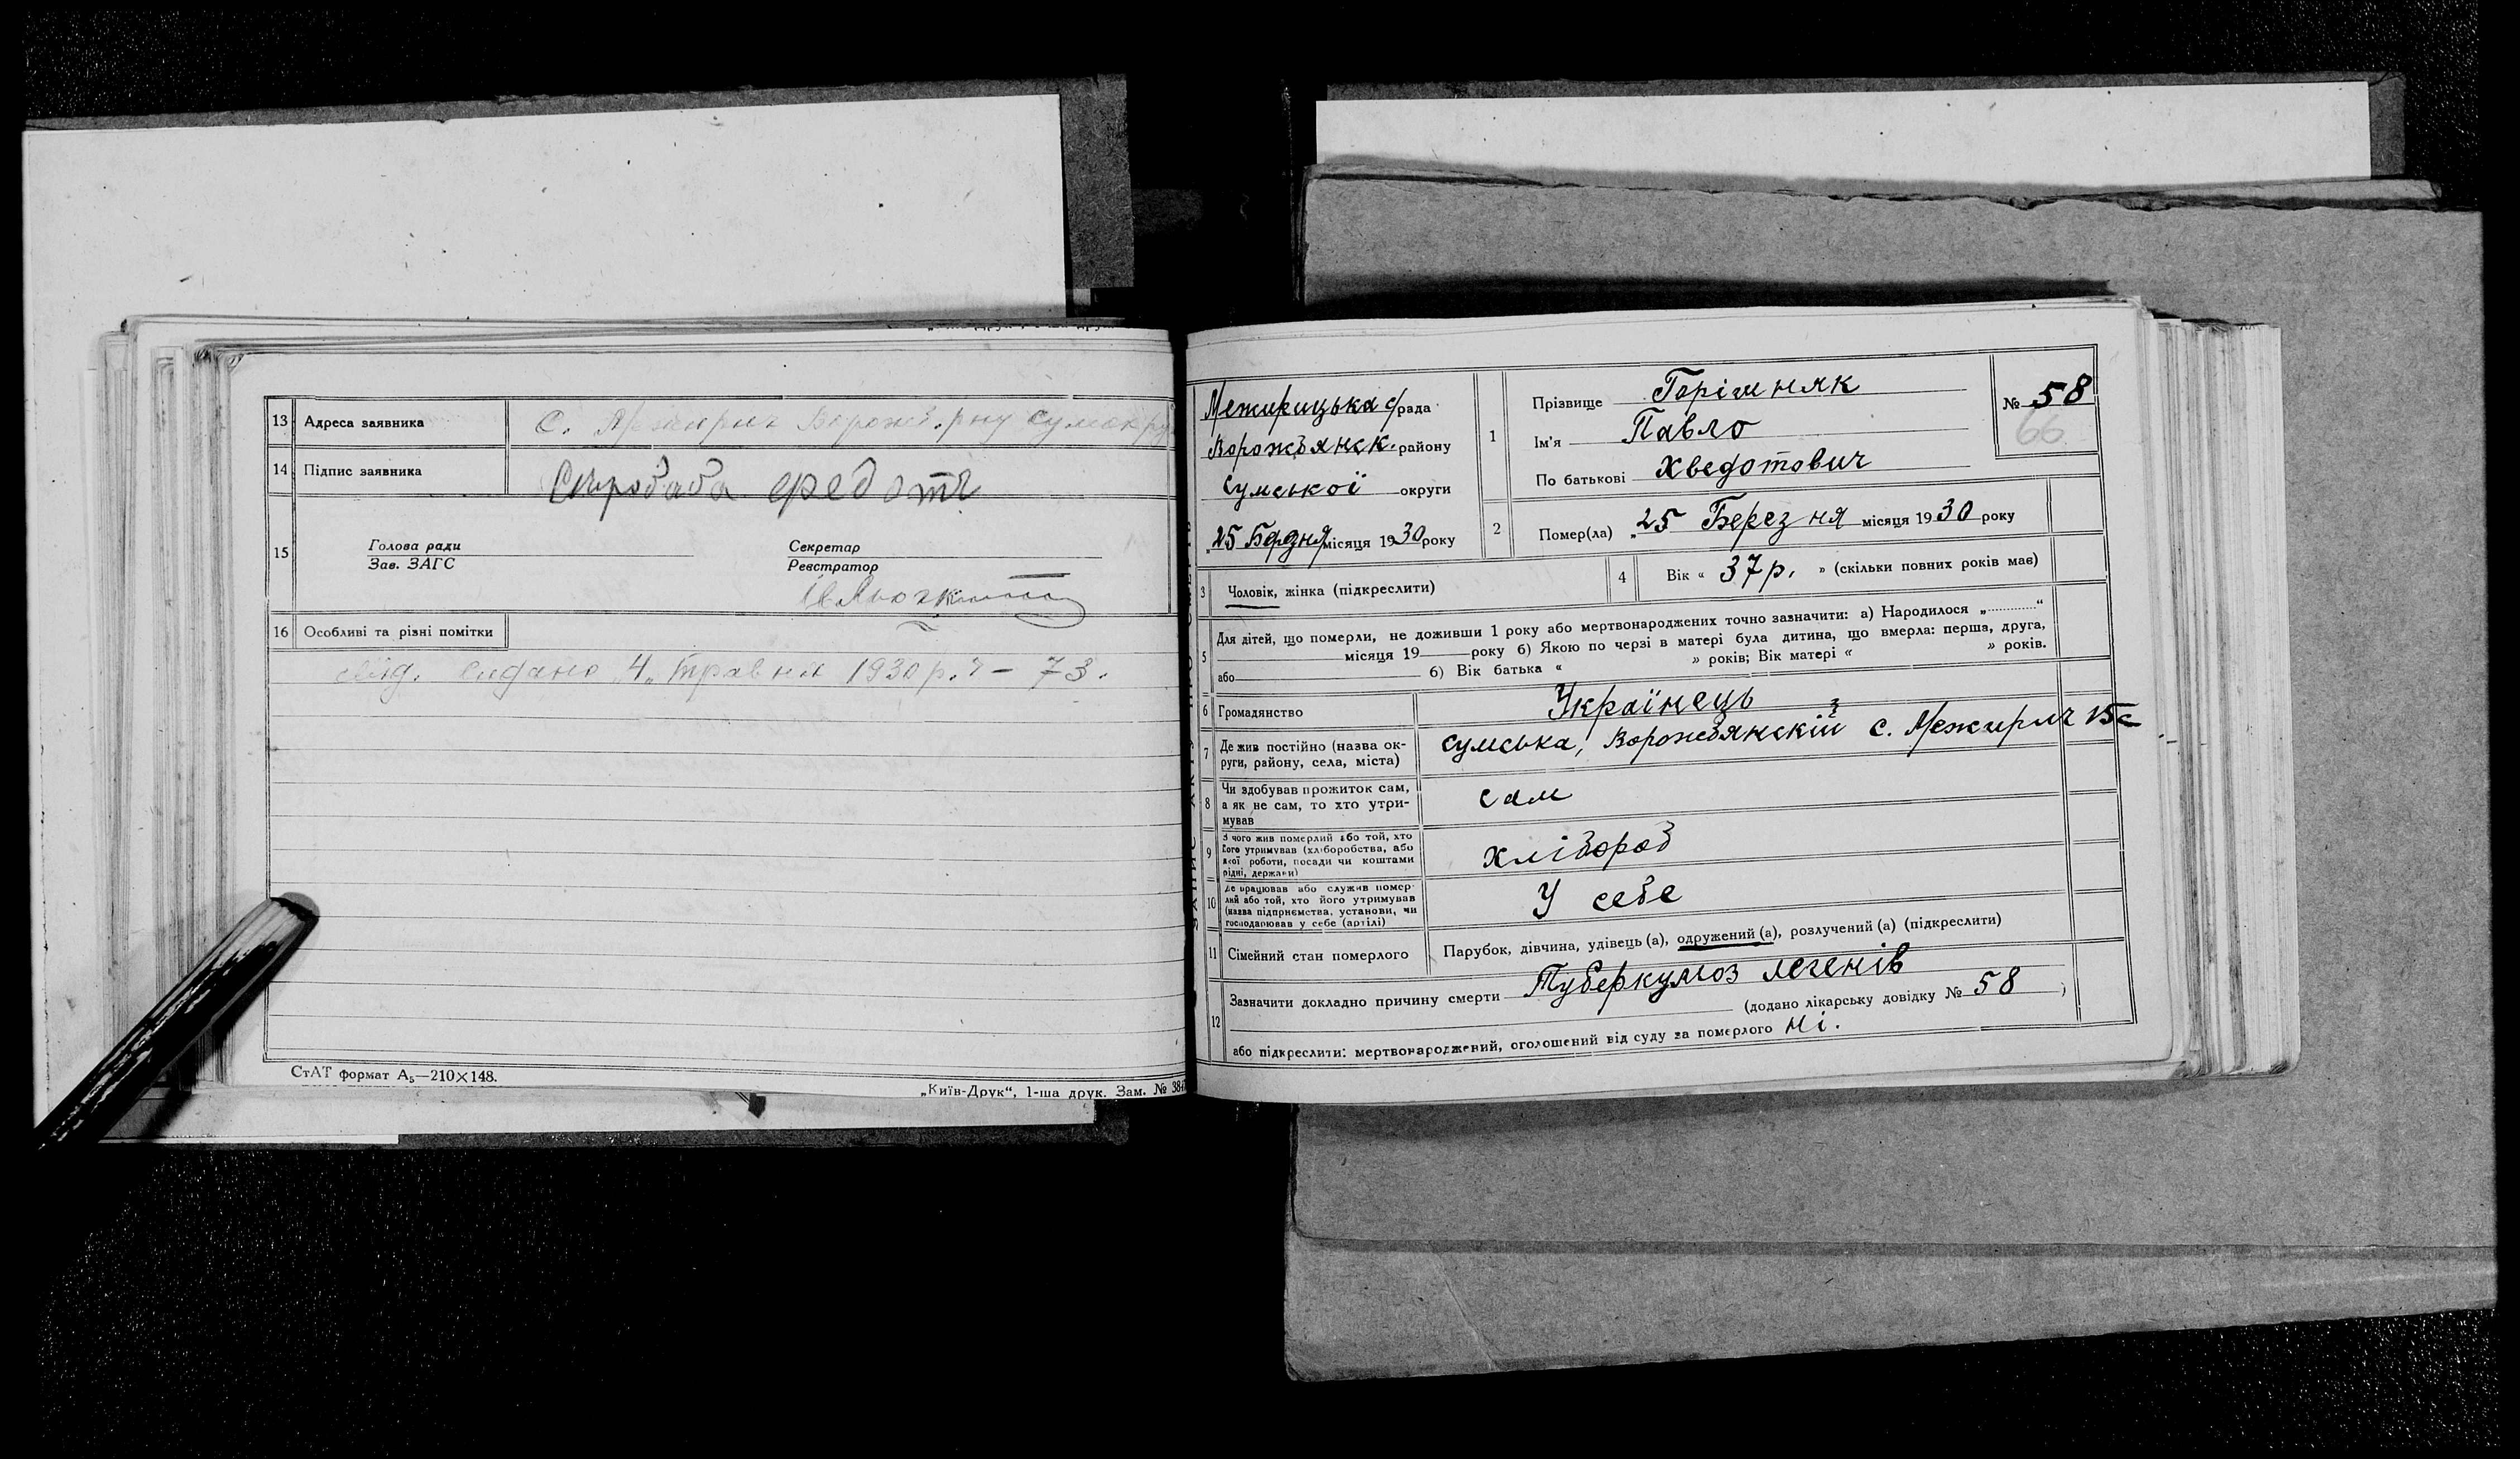 13 Адреса заявника С. Межирич Ворожб. р-ну Сум. окр
14 Підпис заявника федот
15 Голова ради
Зав. ЗАГС
Секретар
Реєстратор
16 Особливі та різні помітки
свід. видано 4 травня 1930 р. 73.
СтАТ формат А₅—210×148.
„Київ-Друк“, 1-ша друк. Зам. № 384
Межирицька с/рада
Ворожбянск. району
Сумської округи
„25 Березня місяця 1930 року
1 Прізвище
Ім'я Павло
По батькові Хведотович
№ 58
66
2 Помер(ла) „25 Березня місяця 1930 року
3 Чоловік, жінка (підкреслити)
4 Вік « 37 р. » (скільки повних років має)
5 Для дітей, що померли, не доживши 1 року або мертвонароджених точно зазначити: а) Народилося „ “
місяця 19 року б) Якою по черзі в матері була дитина, що вмерла: перша, друга,
або б) Вік батька « » років; Вік матері « » років.
6 Громадянство Українець
7 Де жив постійно (назва ок-
руги, району, села, міста) Сумська, Ворожбянскій с. Межирич
8 Чи здобував прожиток сам,
а як не сам, то хто утри-
мував сам
9 З чого жив померлий або той, хто
його утримував (хліборобства, або
якої роботи, посади чи коштами
рідні, держави) хлібороб
10 Де працював або служив помер-
лий або той, хто його утримував
(назва підприємства, установи, чи
господарював у себе (артілі) У себе
11 Сімейний стан померлого Парубок, дівчина, удівець (а), одружений (а), розлучений (а) (підкреслити)
12 Зазначити докладно причину смерти Туберкульоз легенів
(додано лікарську довідку № 58 )
або підкреслити: мертвонароджений, оголошений від суду за померлого Ні.